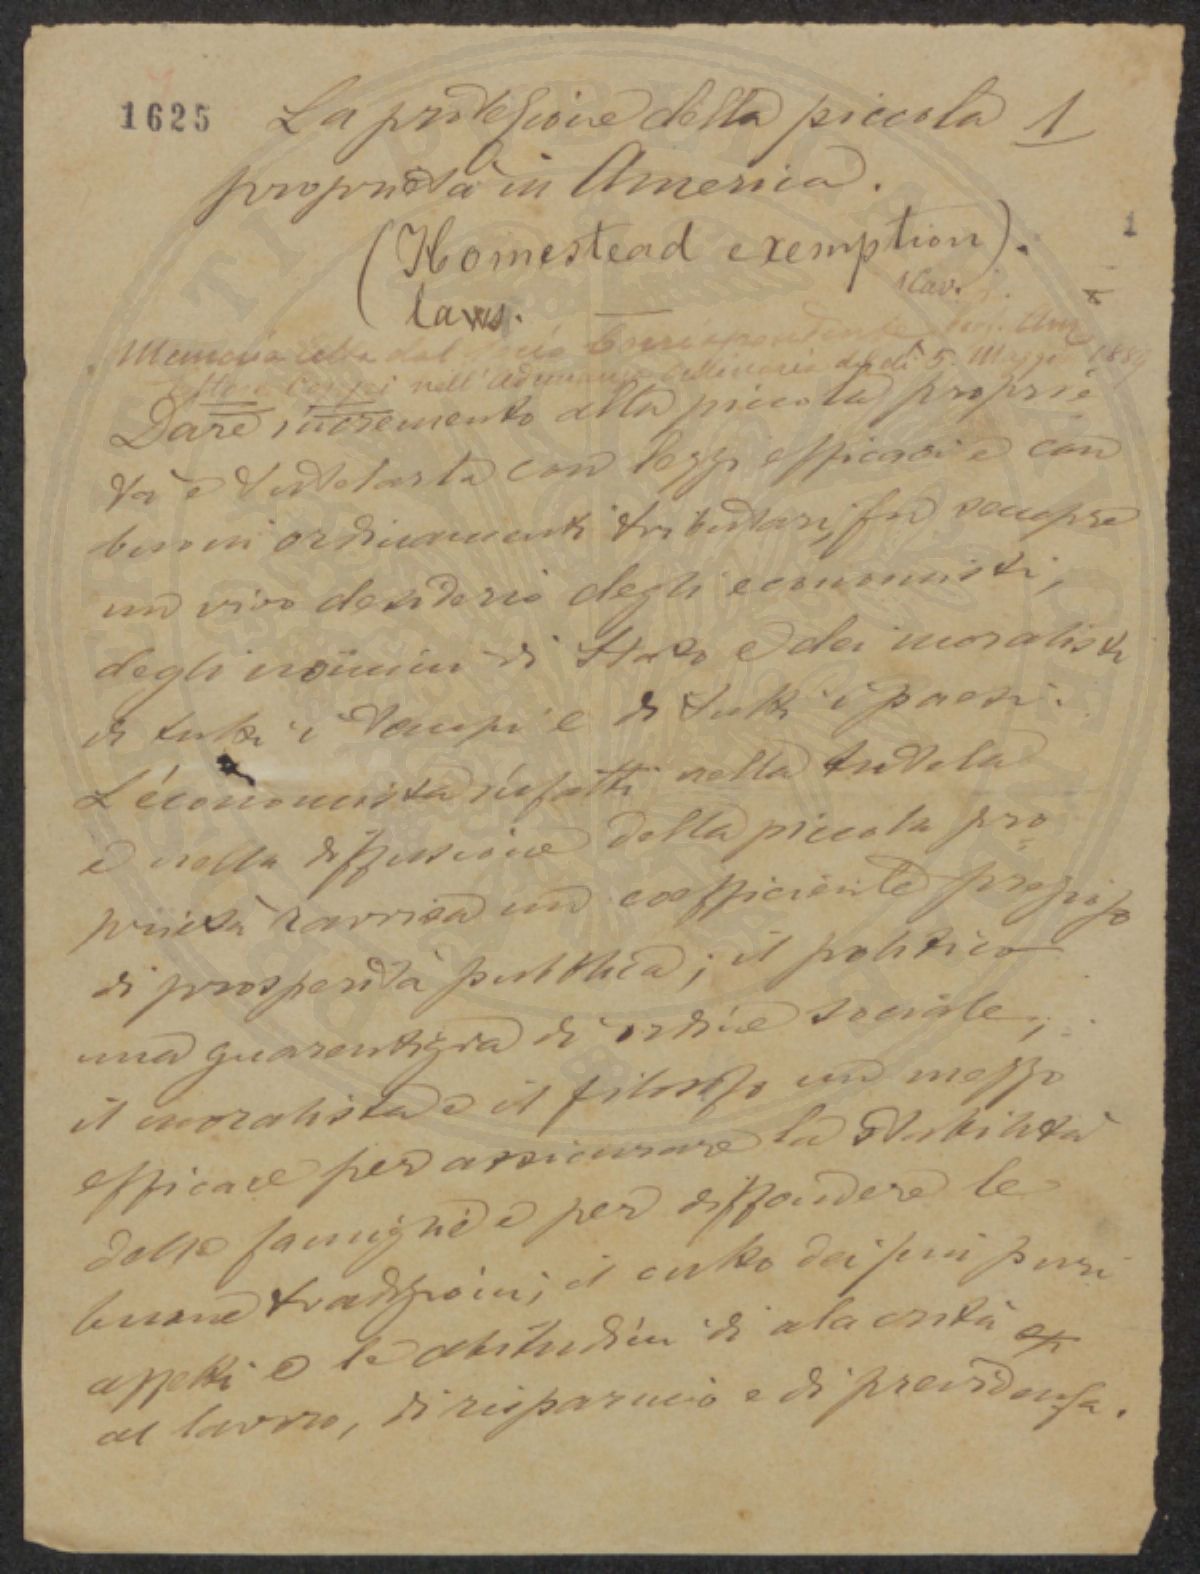 1625 La protezione della piccola 1
proprietà in America.
1
(Homestead exemption).
laws.
Cav.
Memoria letta dal Socio Corrispondente
nell'adunanza del dì 5. Maggio
Dare incremento alla piccola proprie
tà e tutelarla con leggi efficaci e con
buoni ordinamenti tributari, fu sempre
un vivo desiderio degli economisti,
degli uomini di Stato e dei moralisti
di tutti i tempi e di tutti i paesi.
L'economista infatti nella tutela
e nella diffusione della piccola pro
prietà ravvisa un coefficiente prezioso
di prosperità pubblica; il politico
una guarentigia di ordine sociale;
il moralista e il filosofo un mezzo
efficace per assicurare la stabilità
delle famiglie e per diffondere le
buone tradizioni, il culto dei più puri
affetti e le abitudini di alacrità
al lavoro, di risparmio e di previdenza.